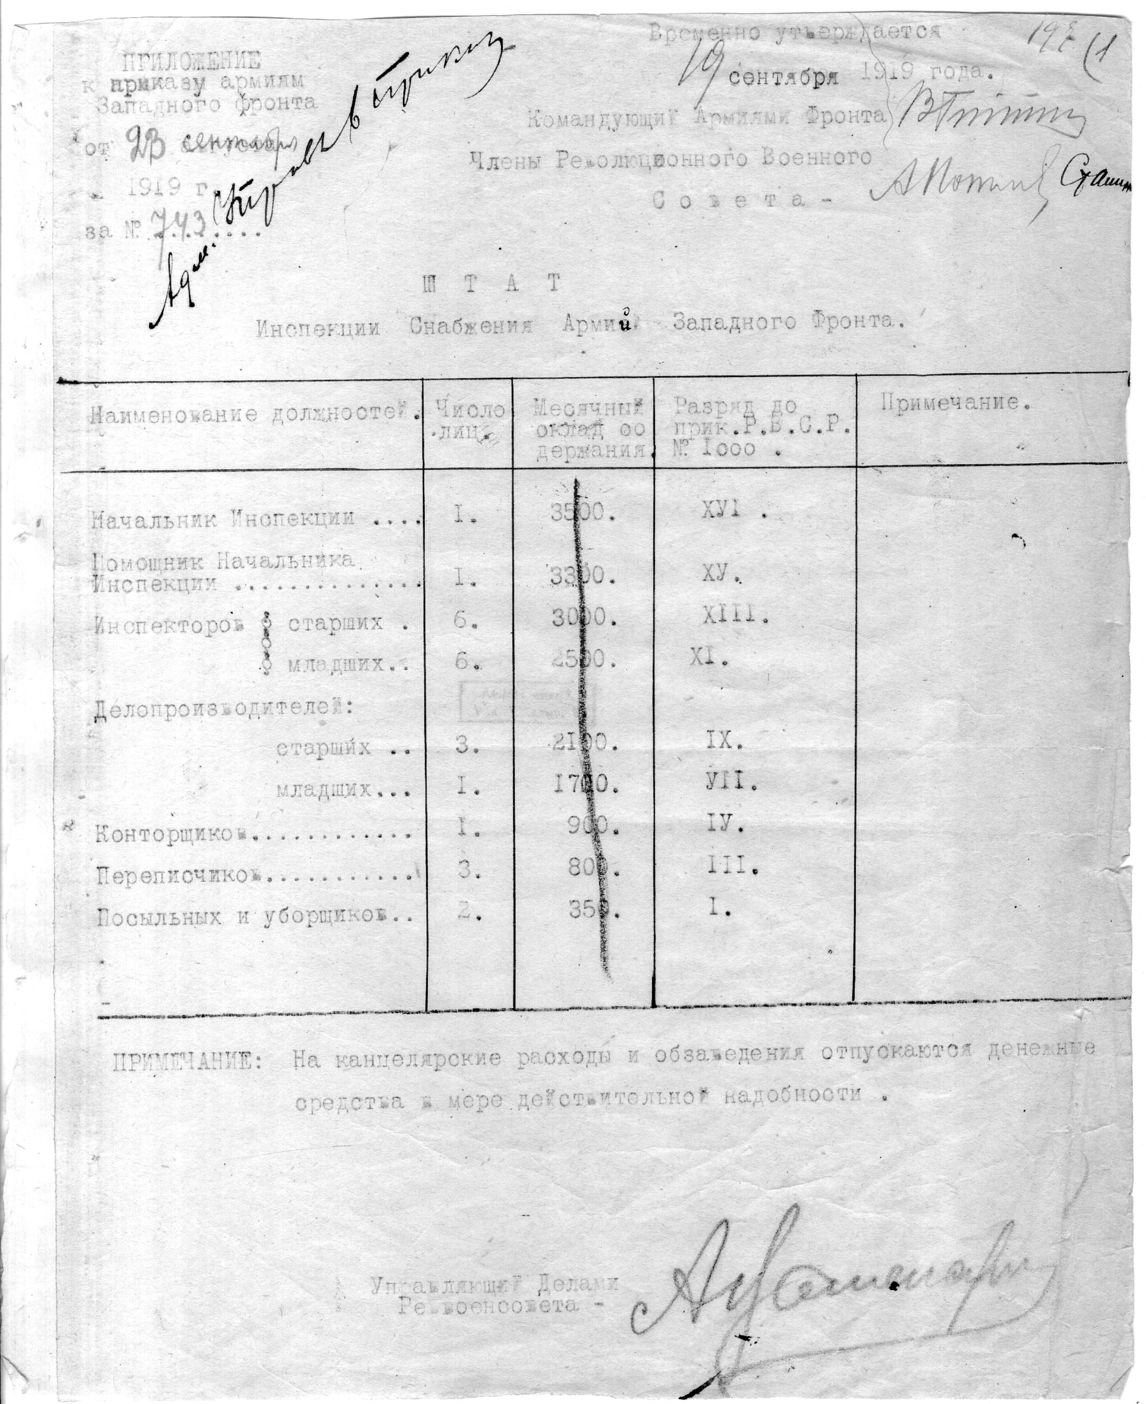 ПРИЛОЖЕНИЕ
к приказу армиям
Западного фронта
от 23 сентября
1919 г.
за № 743....
Временно утверждается
19 сентября 1919 года.
Командующий Армиями Фронта
Члены Революционного Военного
Совета -
Сталин
ШТАТ
Инспекции Снабжения Армий Западного Фронта.
Наименование должностей. Число лиц. Месячный оклад со держания. Разряд до прик.Р.В.С.Р. № 1000 . Примечание.
Начальник Инспекции .... I. 3500. ХУ1 .
Помощник Начальника
Инспекции .............. I. 3300. ХУ.
Инспекторов старших . 6. 3000. XIII.
младших.. 6. 2500. XI.
Делопроизводителей:
старших .. 3. 2100. IX.
младших... I. 1700. УII.
Конторщиков............ I. 900. IУ.
Переписчиков........... 3. 800. III.
Посыльных и уборщиков.. 2. 350. I.
ПРИМЕЧАНИЕ: На канцелярские расходы и обзаведения отпускаются денежные
средства в мере действительной надобности .
Управляющий Делами
Реввоенсовета -